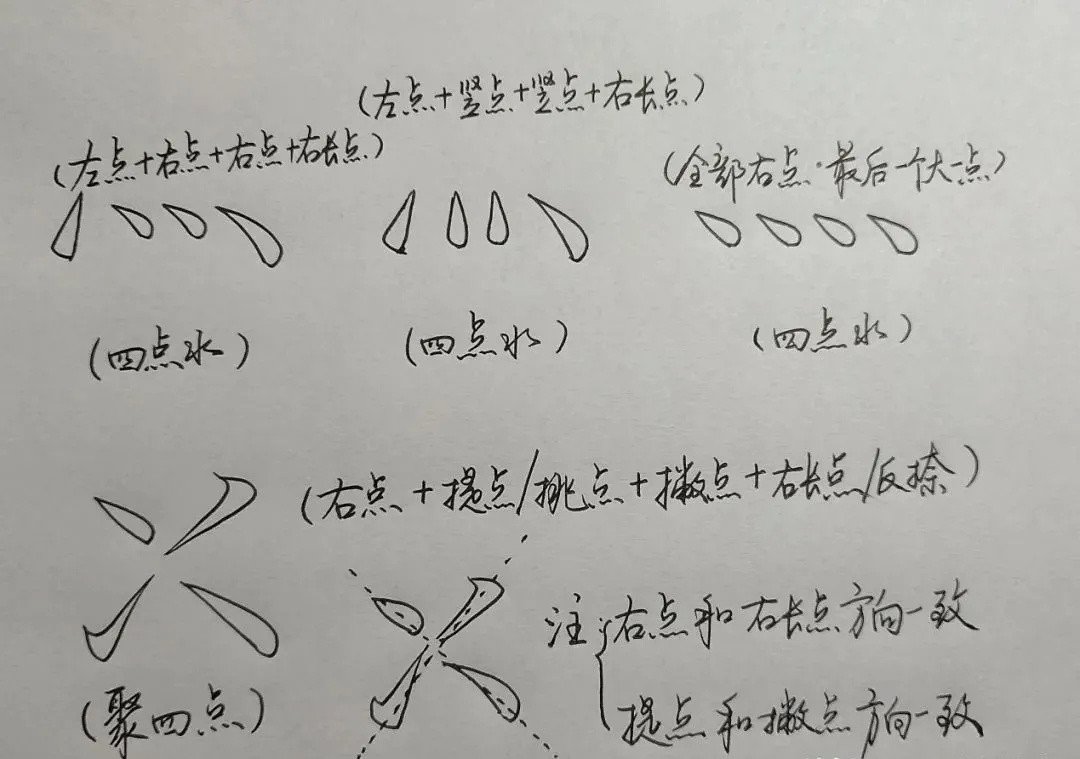 (左点+竖点+竖点+右长点)
(左点+右点+右点+右长点)
(全部右点·最后一个大一点)
(四点水)
(四点水)
(四点水)
(右点+提点/挑点+撇点+右长点/反捺)
注:右点和右长点方向一致
提点和撇点方向一致
(聚四点)